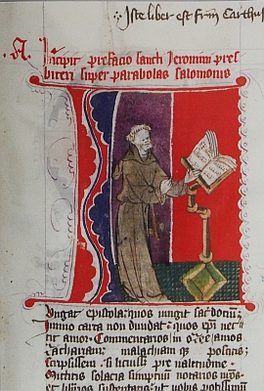 Iste liber est frm Carthus
A. Incipit prefacio sancti Jeronimi pres
biteri super parabolas salomonis
Iungat epistola quos iungit sacerdociu;
Immo carta non diuidat quos xpi nec
tit amor Commentarios in osee amos
zachariam malachiam quoqs poscitis
scripsissem si licuisset pre valitudine
Mittitis solacia sumptuum notarios nros
et librarios sustentatis ut vobis potissimum